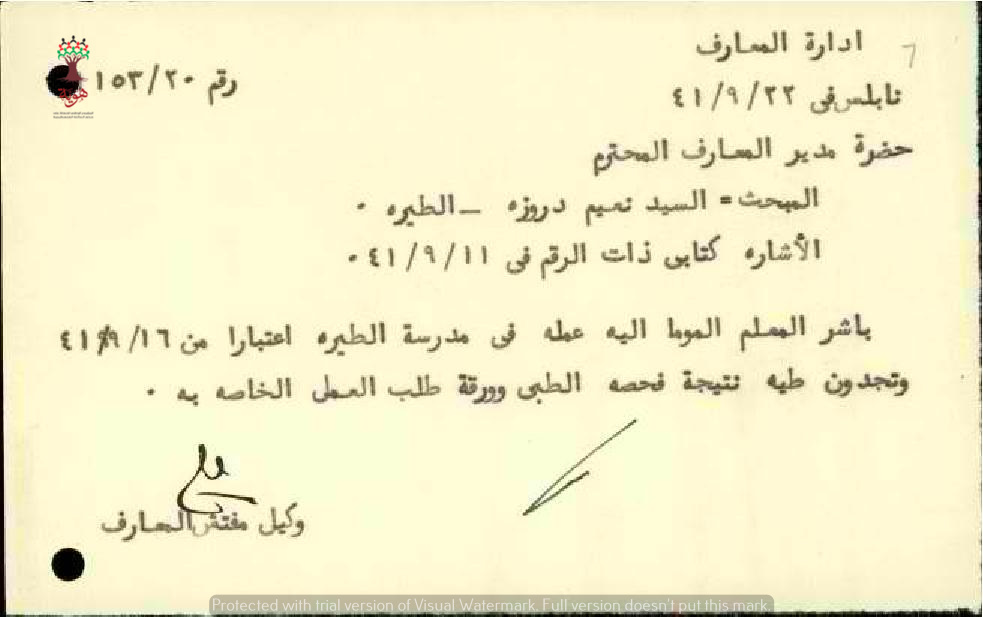 ادارة المعارف
7
رقم ١٥٣/٢٠
نابلس فى ٤١/٩/٢٢
حضرة مدير المعارف المحترم
المبحث = السيد نعيم دروزه ــ الطيره ٠
الأشاره كتابى ذات الرقم فى ٤١/٩/١١ ٠
باشر المعلم الموما اليه عمله فى مدرسة الطيره اعتبارا من ٤١/٩/١٦
وتجدون طيه نتيجة فحصه الطبى وورقة طلب العمل الخاصه به ٠
وكيل مفتش المعارف
هوية
Protected with trial version of Visual Watermark. Full version doesn't put this mark.